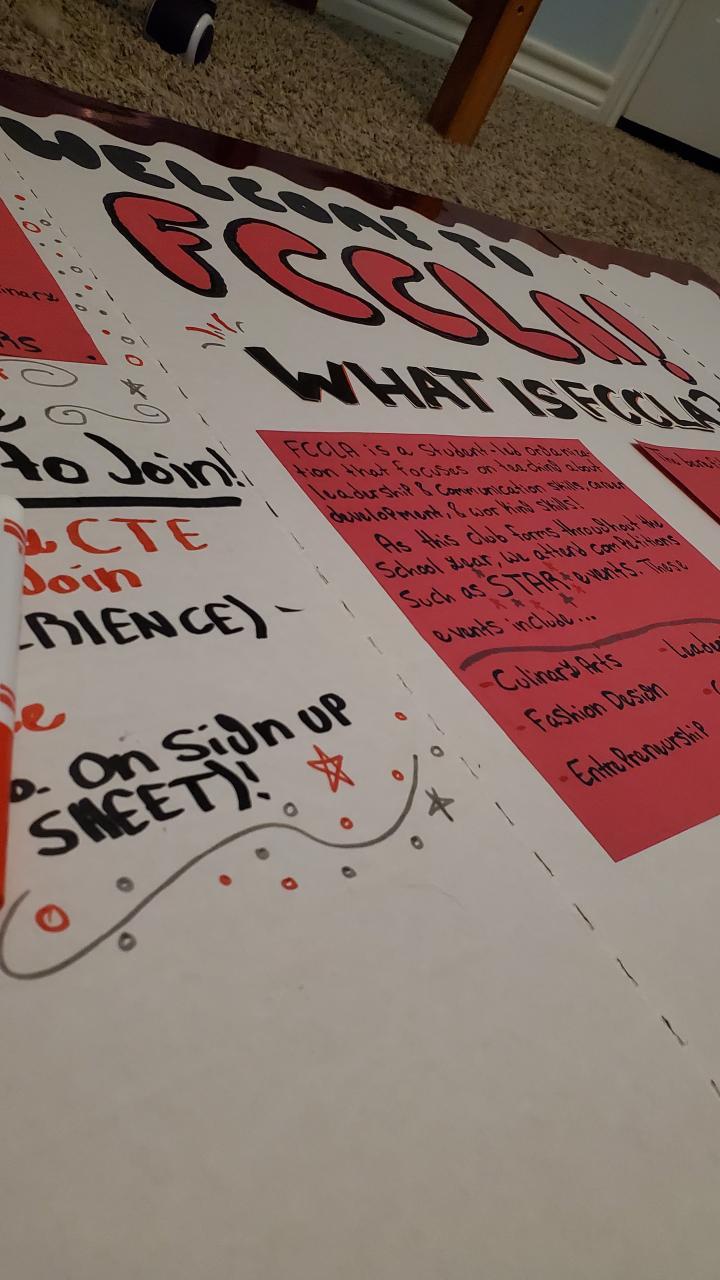 WELCOME TO
FCCLA!
WHAT IS FCCLA?
FCCLA is a student-led organiza-
tion that focuses on teaching about
leadership & Communication skills, career
development, & working skills!
As this club forms throughout the
School year, we attend competitions
Such as STAR events. These
events include...
- Culinary Arts
- Fashion Design
- Entrepreneurship
- Leade
inary
RS
to Join!
CTE
Join
RIENCE) -
o. On Sign UP
SHEET)!